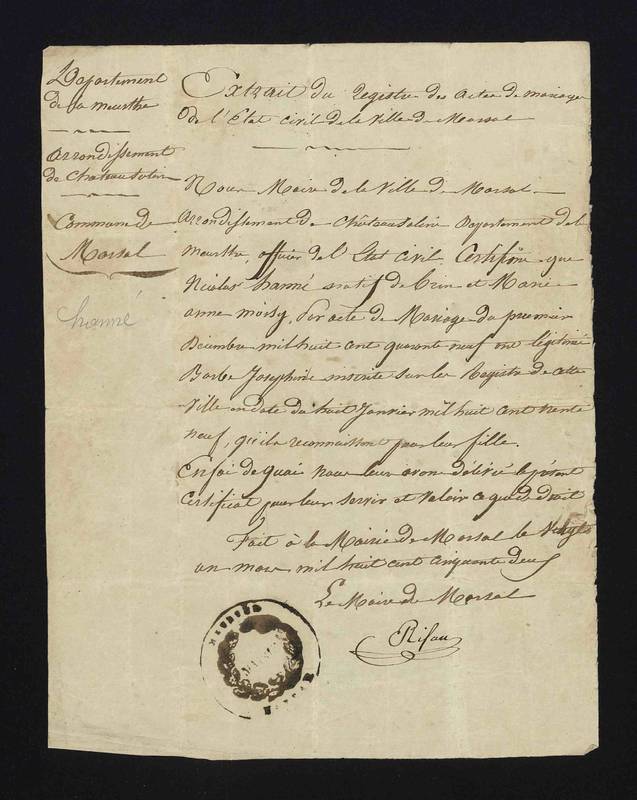 Département
de la meurthe
Arrondissement
de Chateausalin
Commune de
Marsal
hanné
Extrait du Registre des Actes de mariage
de l'Etat civil de la ville de Marsal
Nous Maire de la Ville de Marsal
Arrondissement de Châteausalins Département de la
meurthe, officier de l'Etat civil, Certifions que
Nicolas hanné natif de et Marie
anne moisy, Par acte de Mariage du premier
Décembre mil huit cent quarante neuf ont légitimé
Barbe Josephine inscrite sur les Registre de cette
Ville en date du huit Janvier mil huit cent trente
neuf, qu'ils reconnaissent pour leur fille.
En foi de quoi nous leur avons délivré le présent
Certificat pour leur servir et valoir ce que de droit
Fait à la Mairie de Marsal le Vingt
un mars mil huit cent cinquante deux
Le Maire de Marsal
MAIRIE